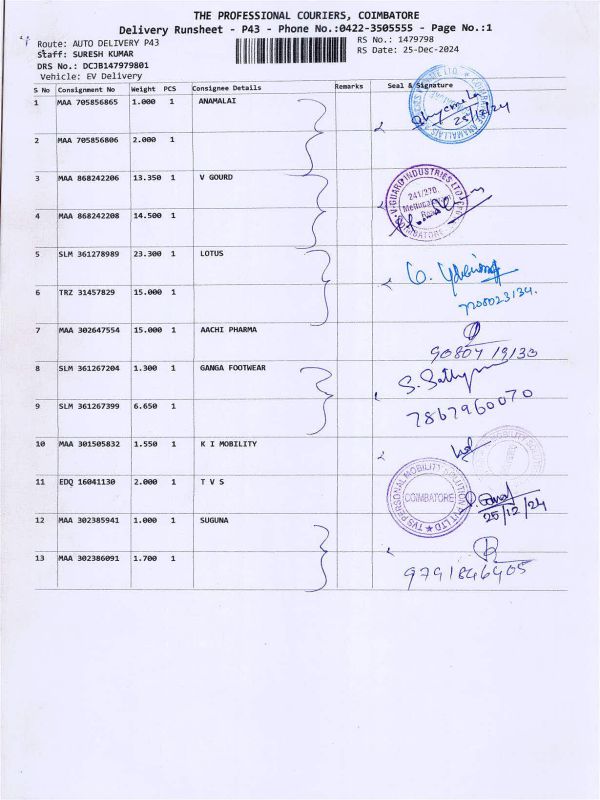 THE PROFESSIONAL COURIERS, COIMBATORE
Delivery Runsheet - P43 - Phone No.:0422-3505555 - Page No.:1
Route: AUTO DELIVERY P43
RS No.: 1479798
Staff: SURESH KUMAR
RS Date: 25-Dec-2024
DRS No.: DCJB147979801
Vehicle: EV Delivery
S No Consignment No Weight PCS Consignee Details Remarks Seal & Signature
1 MAA 705856865 1.000 1 ANAMALAI
25/12/24
2 MAA 705856806 2.000 1
3 MAA 868242206 13.350 1 V GOURD
V-GUARD INDUSTRIES LTD
241/270,
Road
COIMBATORE
4 MAA 868242208 14.500 1
5 SLM 361278989 23.300 1 LOTUS
6 TRZ 31457829 15.000 1
7 MAA 302647554 15.000 1 AACHI PHARMA
90807 19130
8 SLM 361267204 1.300 1 GANGA FOOTWEAR
9 SLM 361267399 6.650 1
7867960070
10 MAA 301505832 1.550 1 K I MOBILITY
11 EDQ 16041130 2.000 1 T V S
TVS PERSONAL MOBILITY SOLUTION PVT LTD
COIMBATORE
25/12/24
12 MAA 302385941 1.000 1 SUGUNA
13 MAA 302386091 1.700 1
9791846405